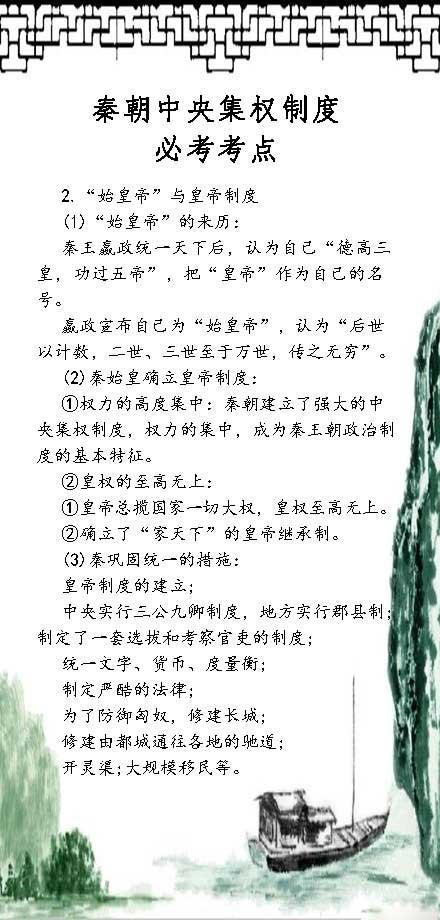 秦朝中央集权制度
必考考点
2.“始皇帝”与皇帝制度
(1)“始皇帝”的来历:
秦王嬴政统一天下后，认为自己“德高三
皇，功过五帝”，把“皇帝”作为自己的名
号。
嬴政宣布自己为“始皇帝”，认为“后世
以计数，二世、三世至于万世，传之无穷”。
(2)秦始皇确立皇帝制度:
①权力的高度集中：秦朝建立了强大的中
央集权制度，权力的集中，成为秦王朝政治制
度的基本特征。
②皇权的至高无上:
①皇帝总揽国家一切大权，皇权至高无上。
②确立了“家天下”的皇帝继承制。
(3)秦巩固统一的措施:
皇帝制度的建立;
中央实行三公九卿制度，地方实行郡县制;
制定了一套选拔和考察官吏的制度;
统一文字、货币、度量衡;
制定严酷的法律;
为了防御匈奴，修建长城;
修建由都城通往各地的驰道;
开灵渠;大规模移民等。